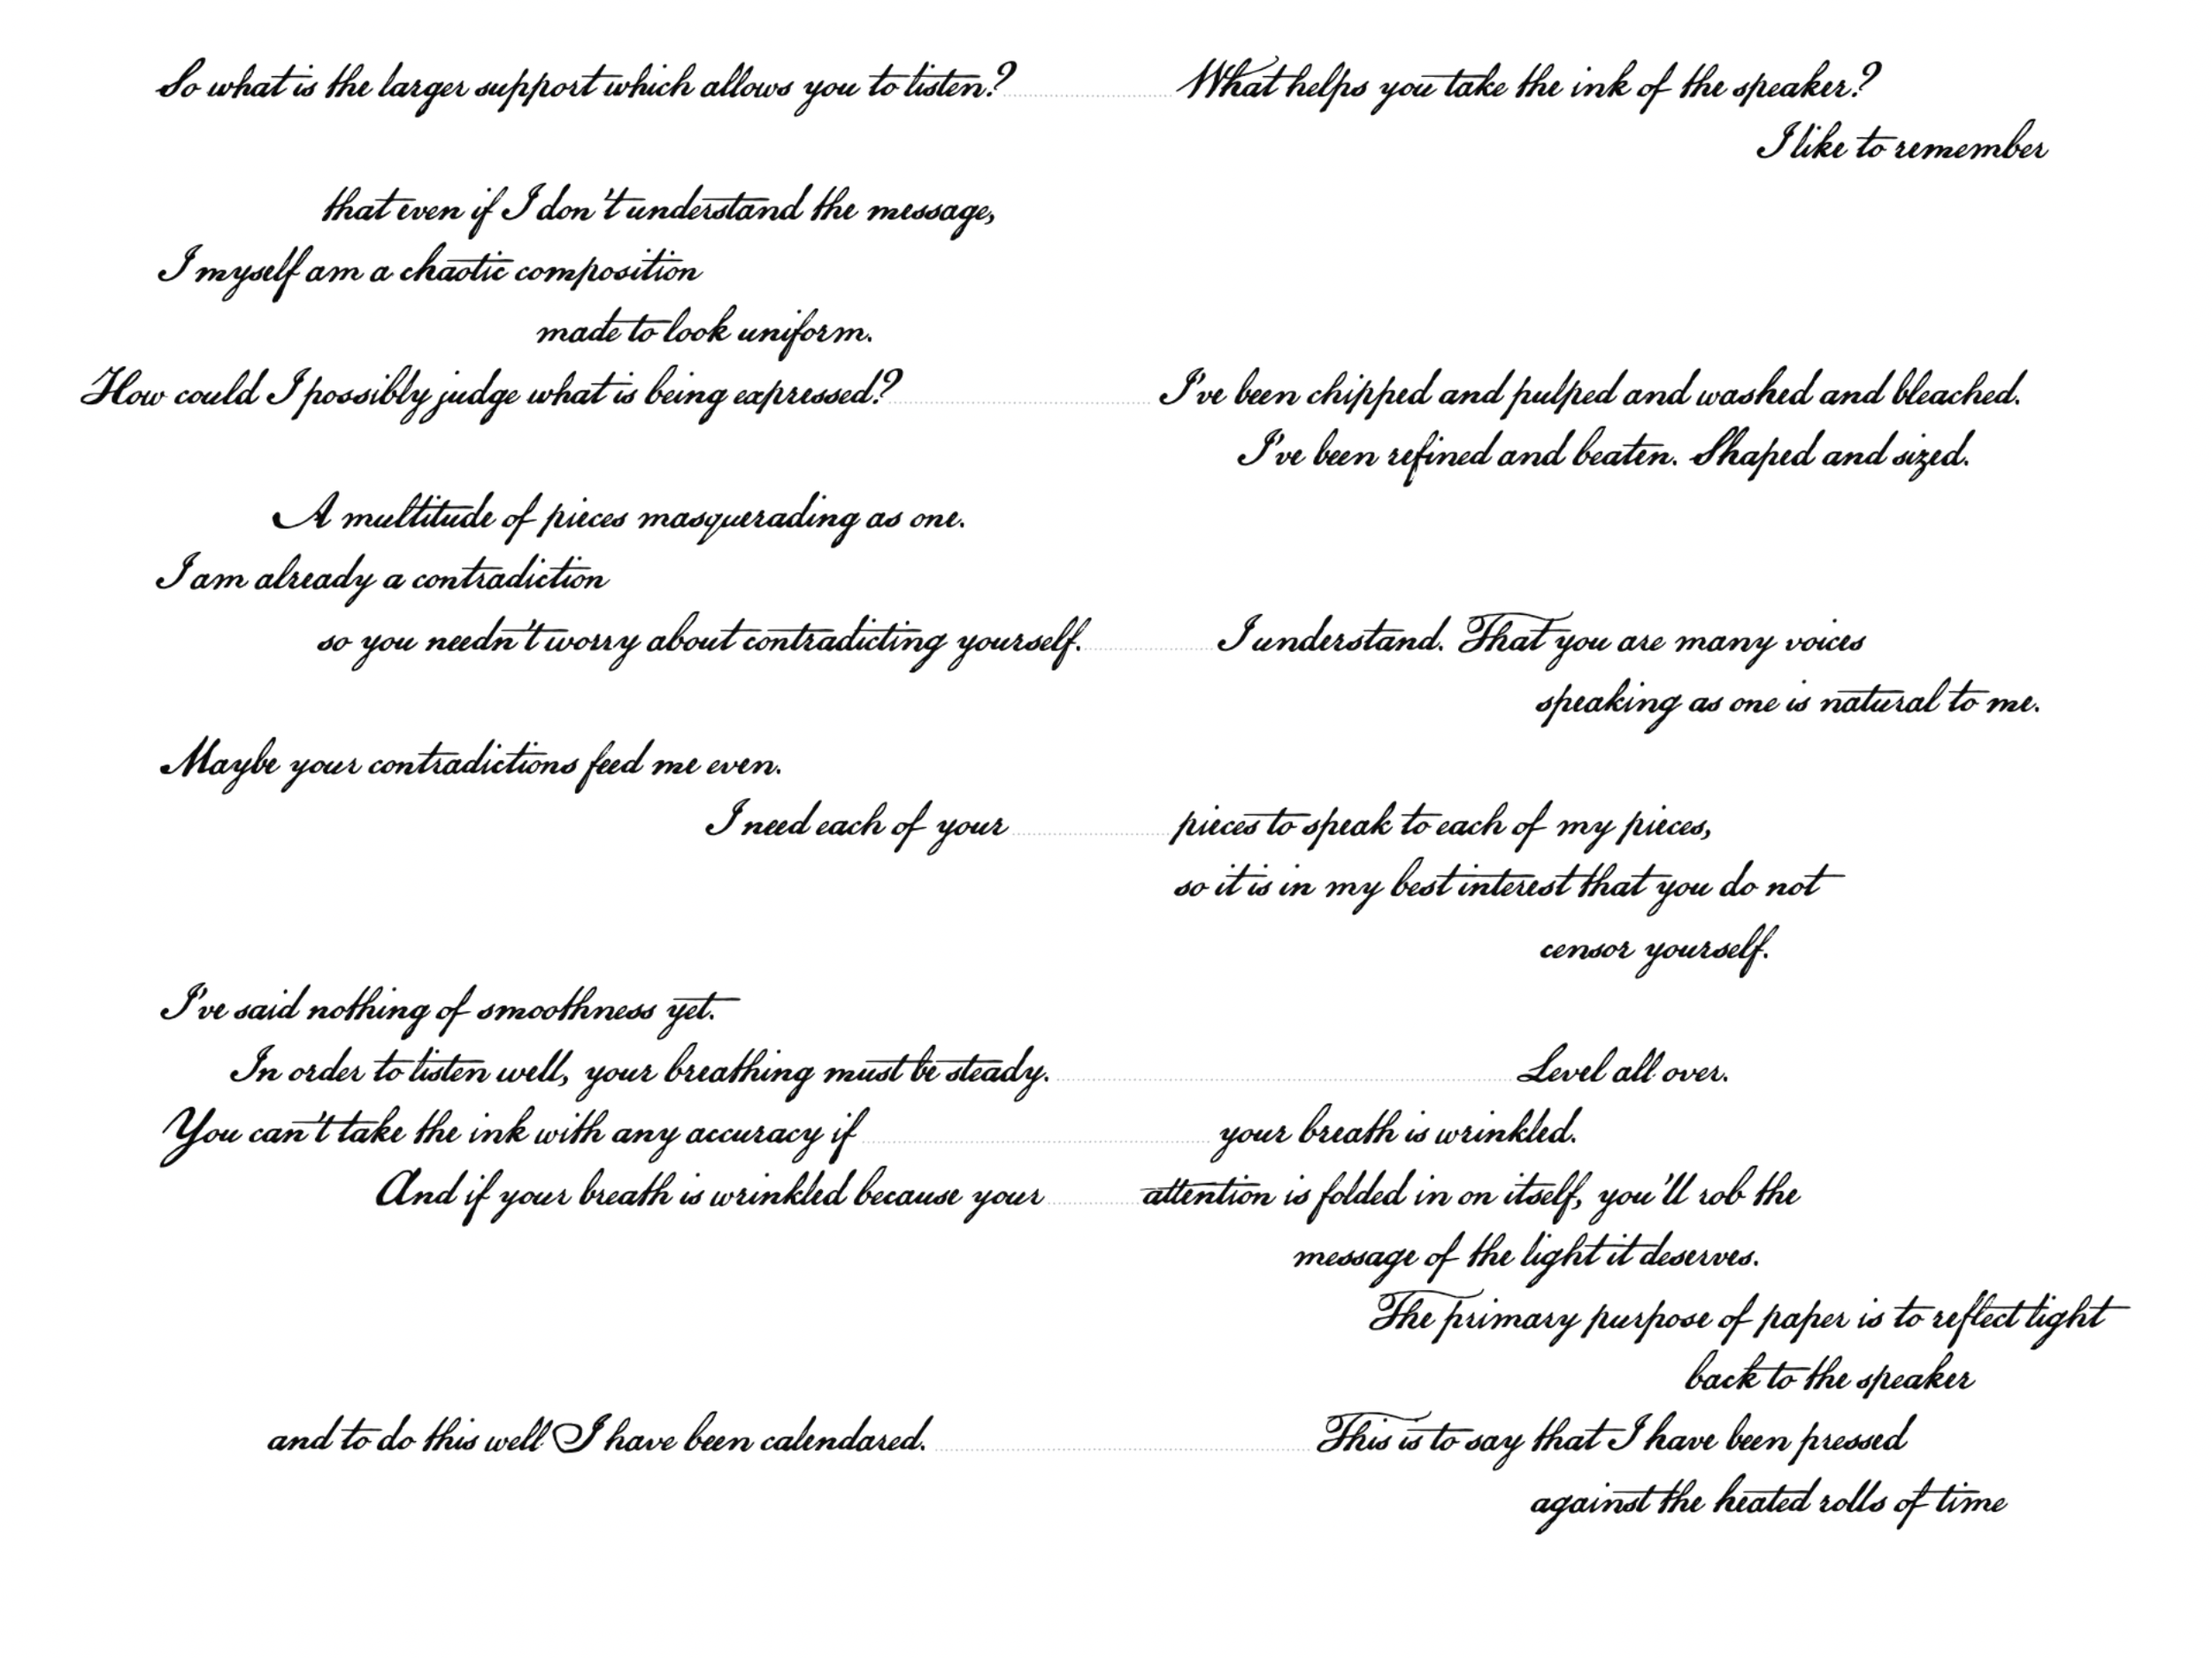 So what is the larger support which allows you to listen? What helps you take the ink of the speaker?
I like to remember
that even if I don't understand the message,
I myself am a chaotic composition
made to look uniform.
How could I possibly judge what is being expressed? I've been chipped and pulped and washed and bleached.
I've been refined and beaten. Shaped and sized.
A multitude of pieces masquerading as one.
I am already a contradiction
so you needn't worry about contradicting yourself. I understand. That you are many voices
speaking as one is natural to me.
Maybe your contradictions feed me even.
I need each of your pieces to speak to each of my pieces,
so it is in my best interest that you do not
censor yourself.
I've said nothing of smoothness yet.
In order to listen well, your breathing must be steady. Level all over.
You can't take the ink with any accuracy if your breath is wrinkled.
And if your breath is wrinkled because your attention is folded in on itself, you'll rob the
message of the light it deserves.
The primary purpose of paper is to reflect light
back to the speaker
and to do this well I have been calendared. This is to say that I have been pressed
against the heated rolls of time